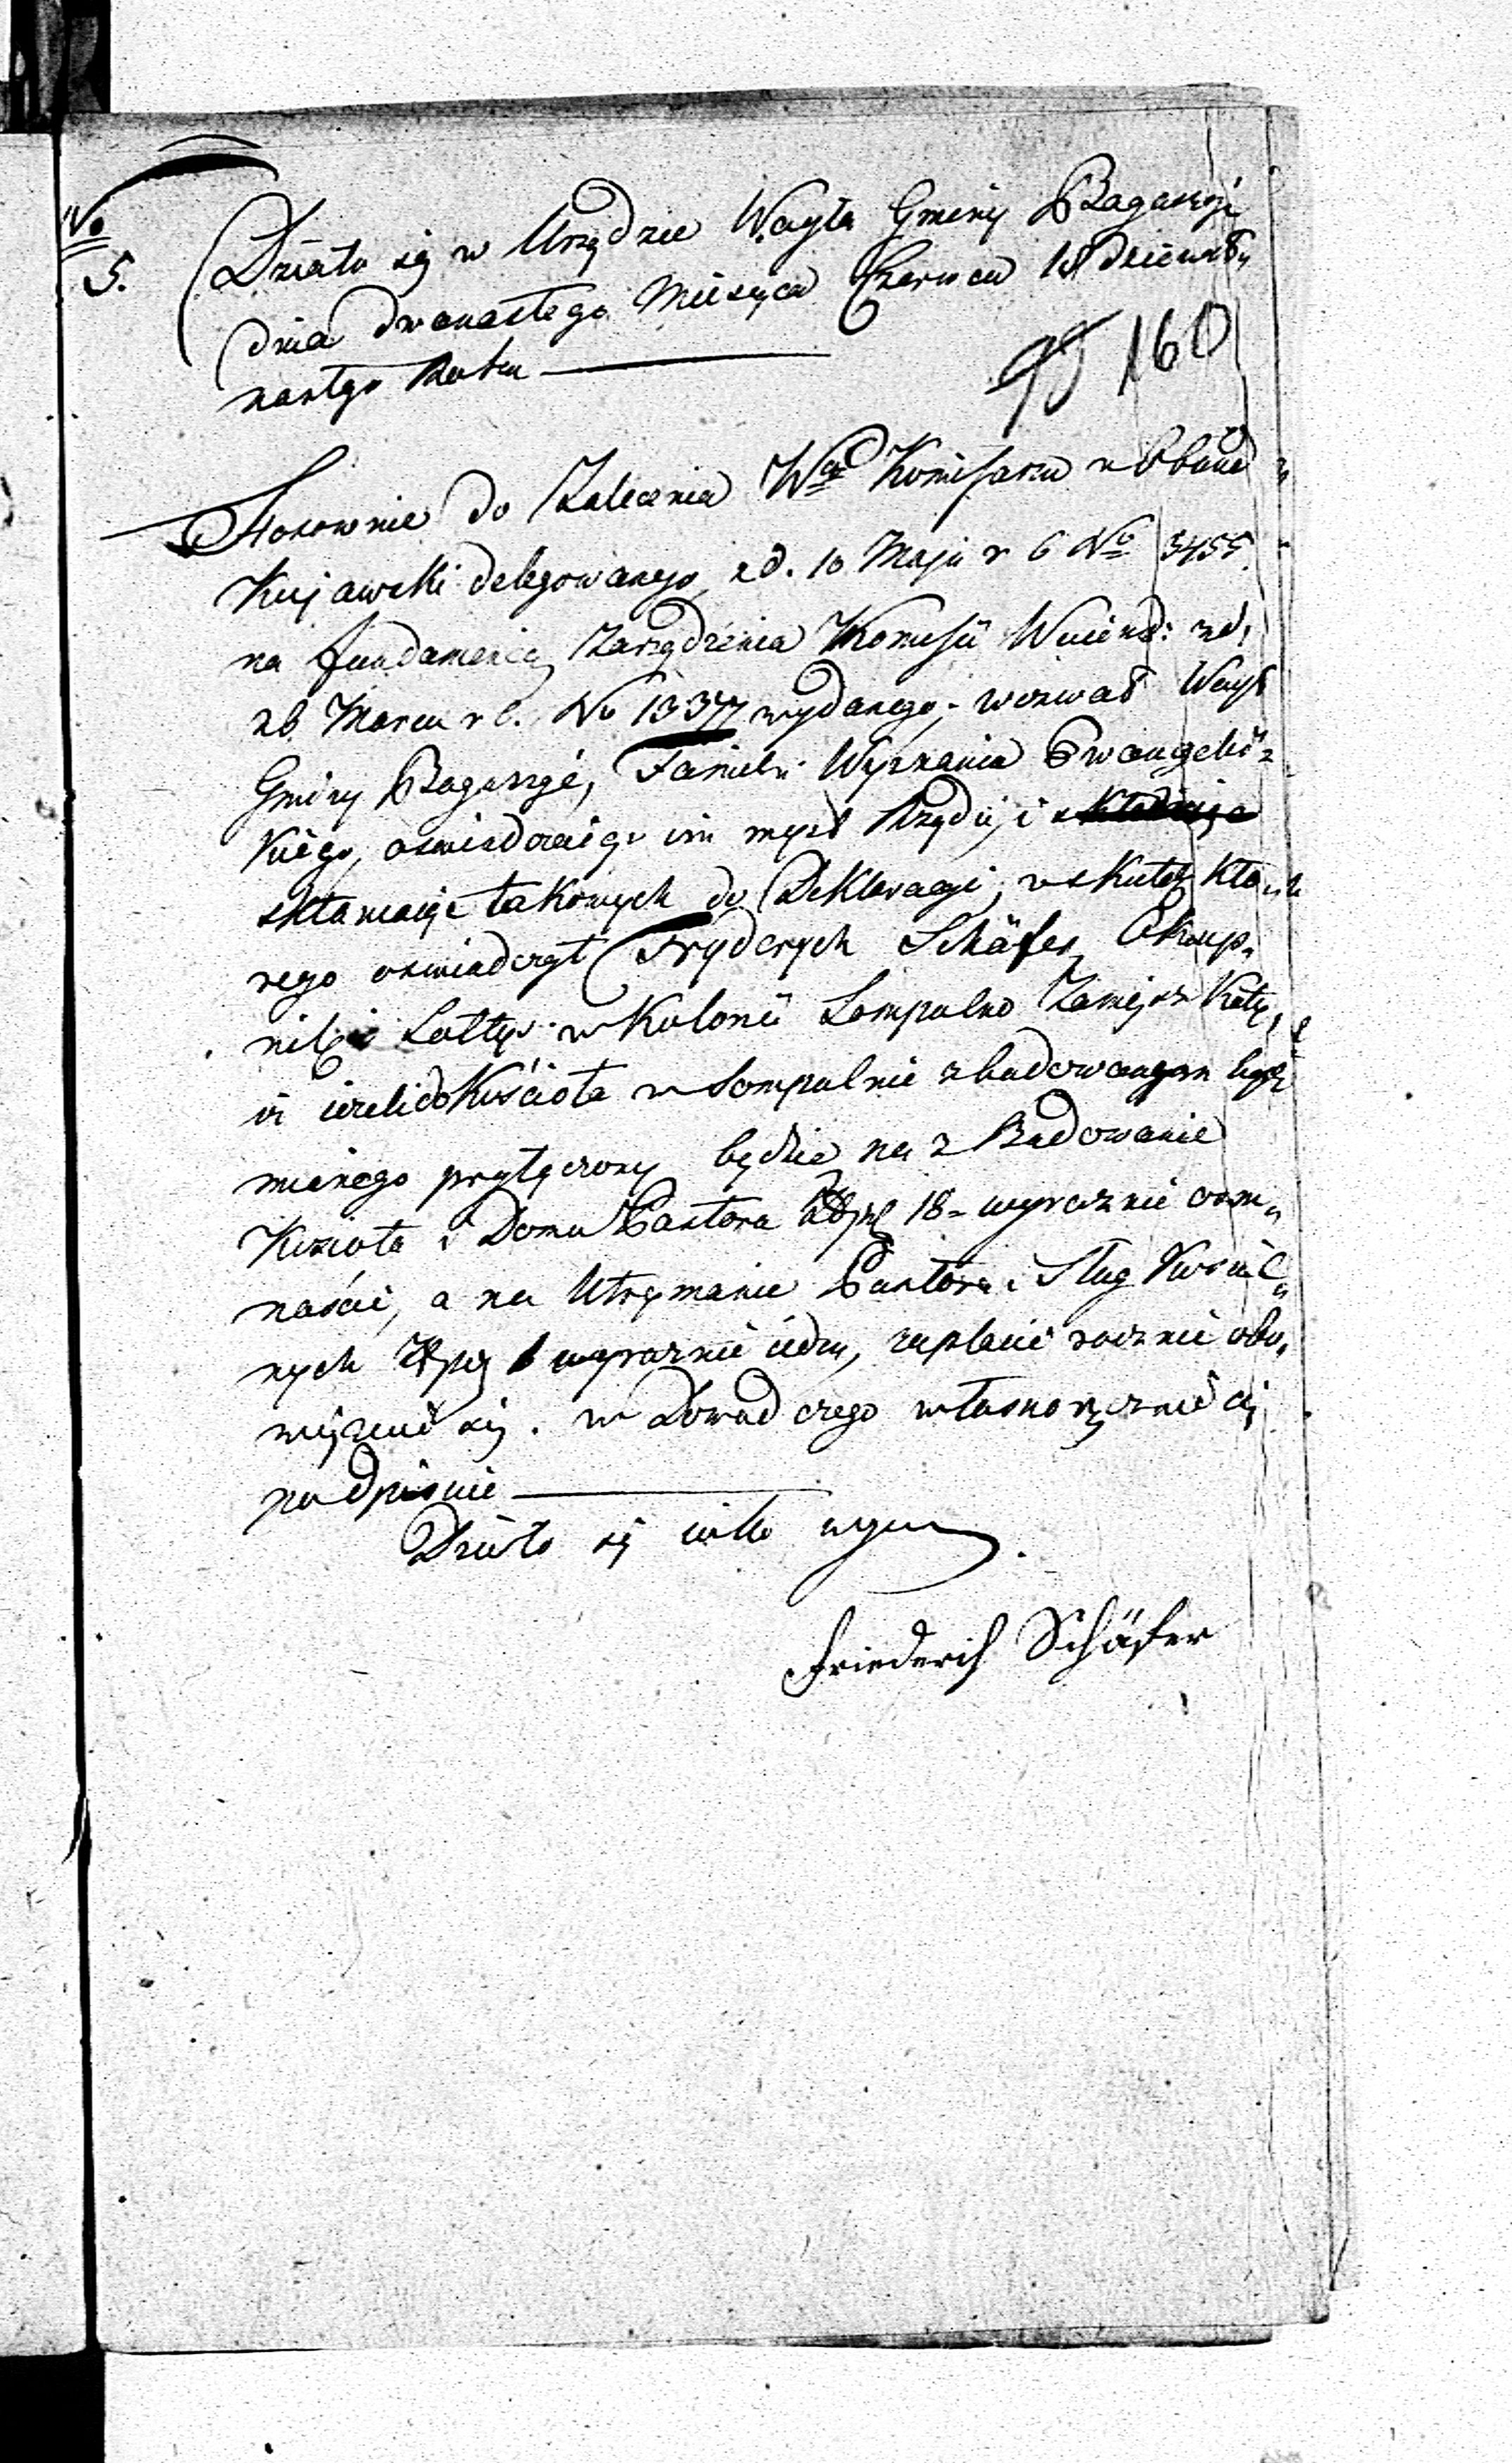 No
5.
Działo się w Urzędzie Wayta Gminy
dnia dwanastego Miesiąca Czerwca 18 dziewiet„
nastgo Roku
160
Stosownie do Zalecenia Komisarza w Obwod
Kujawski delegowanego, z d. 10 Maja r b No 3455.
na fundamencie Zarządzenia Komissii zd.
26 Marca r b. No 13377 wydanego; wezwał Wayt
Gminy Familii Wyznania Ewangelic=
kiego, oswiadczaiąc im myśl Rządu, i
skłaniaiąc takowych do Deklaracyi, w skutek któ
rego oswiadczył Fryderych Schäfer Okup„
nik w Kolonii Sompolno
iż ieżeli do Kościoła w Sompolnie zbudowanym być
mianego przyłączony będzie, na z Budowanie
Kościoła i Domu Pastora 18 = wyraznie osm„
naście, a na Utrzymanie Pastora i Sług Kościel„
nych wyraznie ieden, zaplacić rocznie obo„
więzuie się. w Dowod czego własnoręcznie się
podpisuie
Działo się
Friederich Schäfer